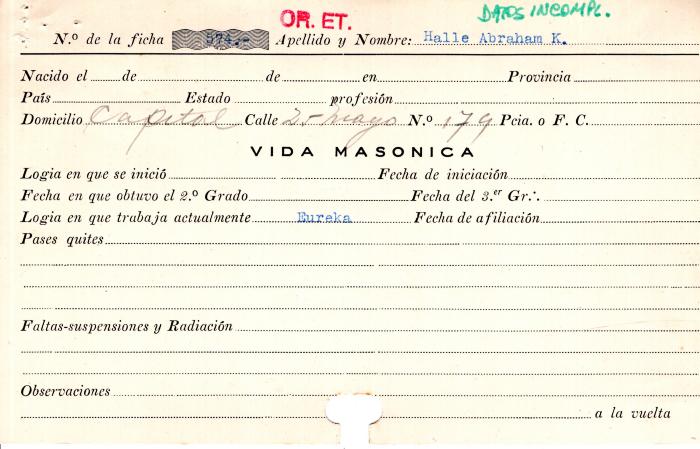 OR. ET. DATOS INCOMPL.
N.º de la ficha 574.- Apellido y Nombre: Halle Abraham K.
Nacido el de de en Provincia
País Estado profesión
Domicilio Capital Calle 25 Mayo N.º 179 Pcia. o F. C.
VIDA MASONICA
Logia en que se inició Fecha de iniciación
Fecha en que obtuvo el 2.º Grado Fecha del 3.er Gr∴
Logia en que trabaja actualmente Eureka Fecha de afiliación
Pases quites
Faltas-suspensiones y Radiación
Observaciones
a la vuelta